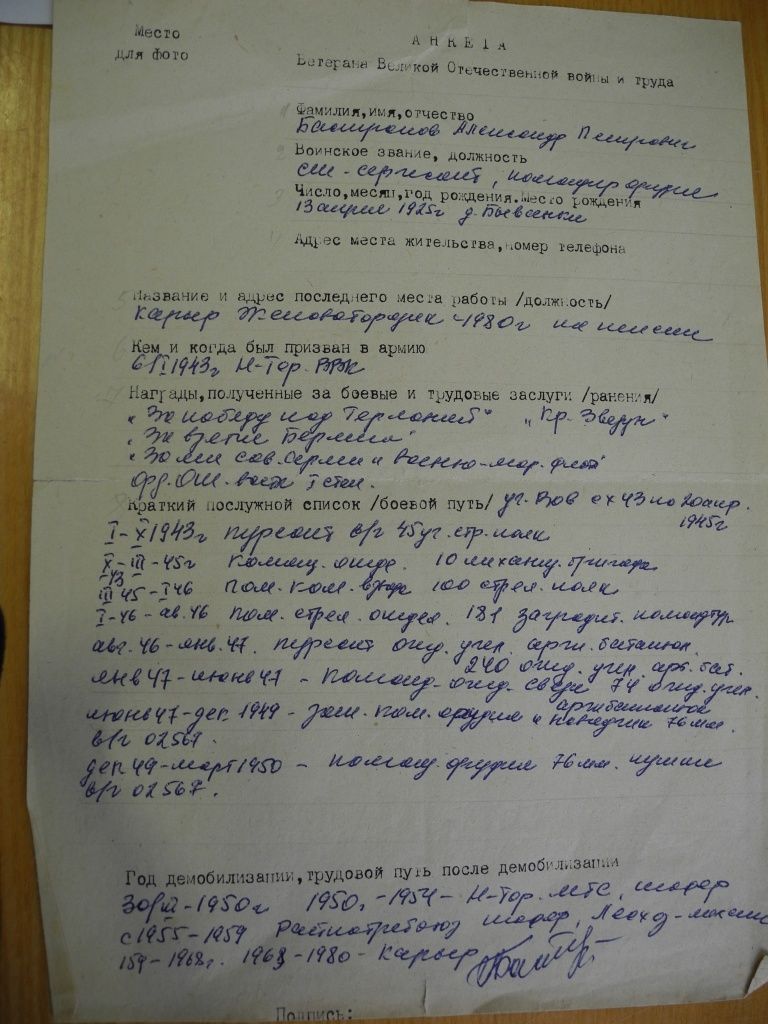 Место
для фото
АНКЕТА
Ветерана Великой Отечественной войны и труда
Фамилия,имя,отчество
Александр Петрович
Воинское звание, должность
ст-сержант, командир орудия
Число,месяц,год рождения.Место рождения
13 апреля 1925г д.
Адрес места жительства,номер телефона
Название и адрес последнего места работы /должность/
Карьер 1980г на пенсии
Кем и когда был призван в армию
6/I 1943г Н-Тор. РВК
Награды,полученные за боевые и трудовые заслуги /ранения/
"За победу над Германией" "Кр. Звезда"
"За взятие Берлина"
сов. армии и военно-мор. флота
орд. От. войн I степ.
Краткий послужной список /боевой путь/ уч. ВОв с х 43 по 20 апр.
1945г
I-X 1943г курсант в/ч 45 уч. стр. полк
X-43-III-45г команд. отде. 10 механиз. бригада
III 45-I 46 пом. ком. взвода 100 стрел. полк
I-46-ав. 46 пом. стрел. отдел. 181 заградит. комендтур
авг. 46-янв. 47. курсант отд. учеб. арт. батальон.
240 отд. учеб. арт. бат.
янв 47-июнь 47 - команд. отд. связи 74 отд. учеб.
артбатальона
июнь 47-дек. 1949 - зам. ком. орудия и наводчик 76мм.
в/ч 02567.
дек 49-март 1950 - команд. орудия 76мм. пушки
в/ч 02567.
Год демобилизации,трудовой путь после демобилизации
30/III-1950г 1950г.-1954- Н-Тор. МТС, шофер
с 1955-1959 шофер,
159-1968г. 1968-1980-Карьер
Подпись: